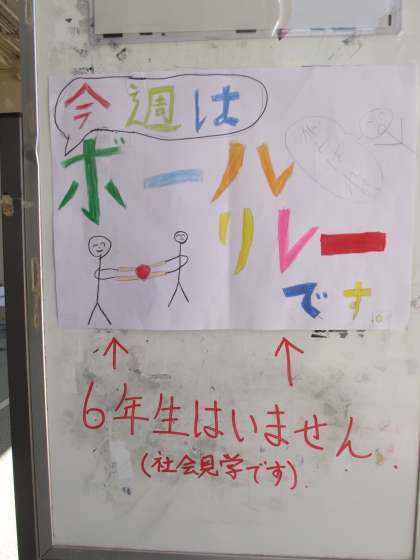 今週は
ボール
リレー
です
6年生はいません
(社会見学です)